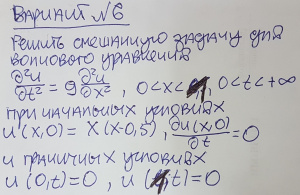 Вариант №6
Решить смешанную задачу для
волнового уравнения
∂²u/∂t² = 9 ∂²u/∂x² , 0<x< , 0<t<+∞
при начальных условиях
u(x,0) = x(x-0,5), ∂u(x,0)/∂t = 0
и граничных условиях
u(0,t)=0, u( ,t)=0